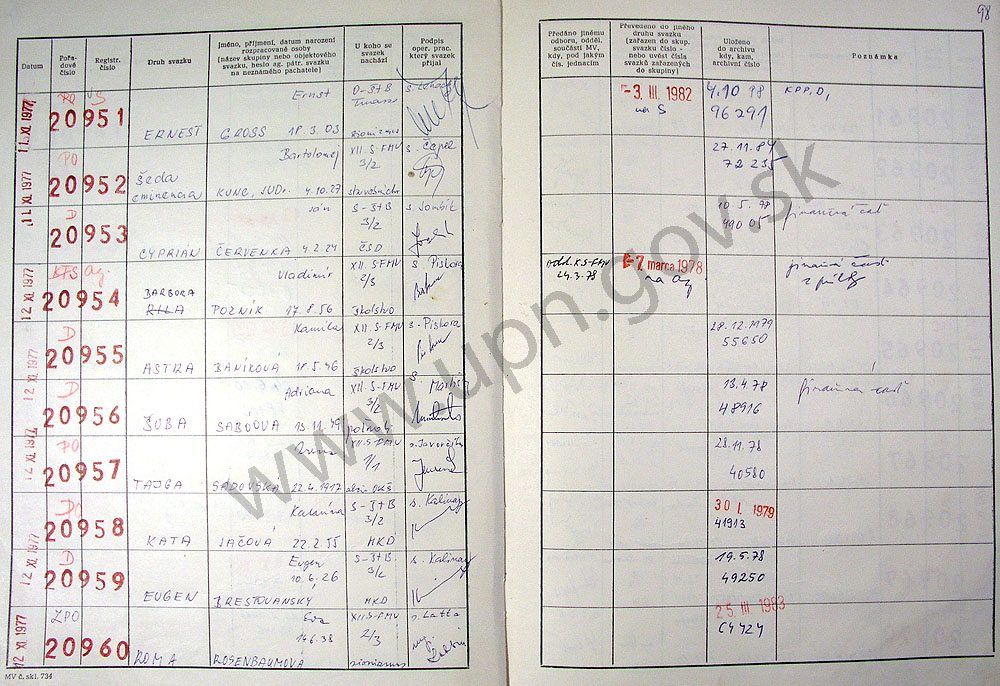 98
Datum
Pořadové číslo
Registr. číslo
Druh svazku
Jméno, příjmení, datum narození rozpracované osoby (název skupiny nebo objektového svazku, heslo ag. pátr. svazku na neznámého pachatele)
U koho se svazek nachází
Podpis oper. prac. který svazek přijal
Předáno jinému odboru, odděl. součásti MV, kdy, pod jakým čís. jednacím
Převedeno do jiného druhu svazku (zařazen do skup. svazku číslo - nebo uvést čísla svazků zařazených do skupiny)
Uloženo do archivu kdy, kam, archivní číslo
Poznámka
11. XI. 1977
PO VS
20951
ERNEST
Ernst
GROSS 18.3.03
sionizmus
-3. III. 1982
na S
4.10 98
96291
KPP, D,
11 XI 1977
PO
20952
Šedá eminencia
Bartolomej
KUNC, JUDr. 4.10.27
XII. S-FMV
3/2
s. Čapek
27.11.84
72235
11 XI 1977
D
20953
CYPRIÁN
Ján
ČERVENKA 4.2.24
S-ŠtB
3/2
ČSD
10.5.78
49005
finančná časť
12 XI 1977
KTS Ag.
20954
BARBORA
RILA
Vladimír
POZNÍK 17.8.56
XII S-FMV
2/3
školstvo
s. Piskora
odd. KS-FMV
24.3.78
-7. marca 1978
na Ag
12 XI 1977
D
20955
ASTRA
Kamila
BANÍKOVÁ 18.5.46
XII S-FMV
2/3
školstvo
s. Piskora
28.12.1979
55650
12 XI 1977
D
20956
ŠUBA
Adriana
SABOOVÁ 13.11.49
XII. S-FMV
3/2
s
13.4.78
48916
finančná časť
12 XI 1977
PO
20957
TAJGA
SADOVSKÁ 22.4.1917
XII. S-FMV
1/1
28.11.78
40580
12 XI 1977
PO
20958
KATA
Katarína
JAČOVÁ 22.2.55
S-ŠtB
3/2
MKD
s. Kalinay
30 I. 1979
41913
12 XI 1977
D
20959
EUGEN
Eugen
10.6.26
BRESTOVANSKÝ
S-ŠtB.
3/2
MKD
s. Kalinay
19.5.78
49250
12 XI. 1977
ZPO
20960
ROMA
Eva
14.6.38
ROSENBAUMOVA
XII S-FMV
2/3
sionizmus
s. Latta
25 III 1983
64424
MV č. skl. 734
www.upn.gov.sk